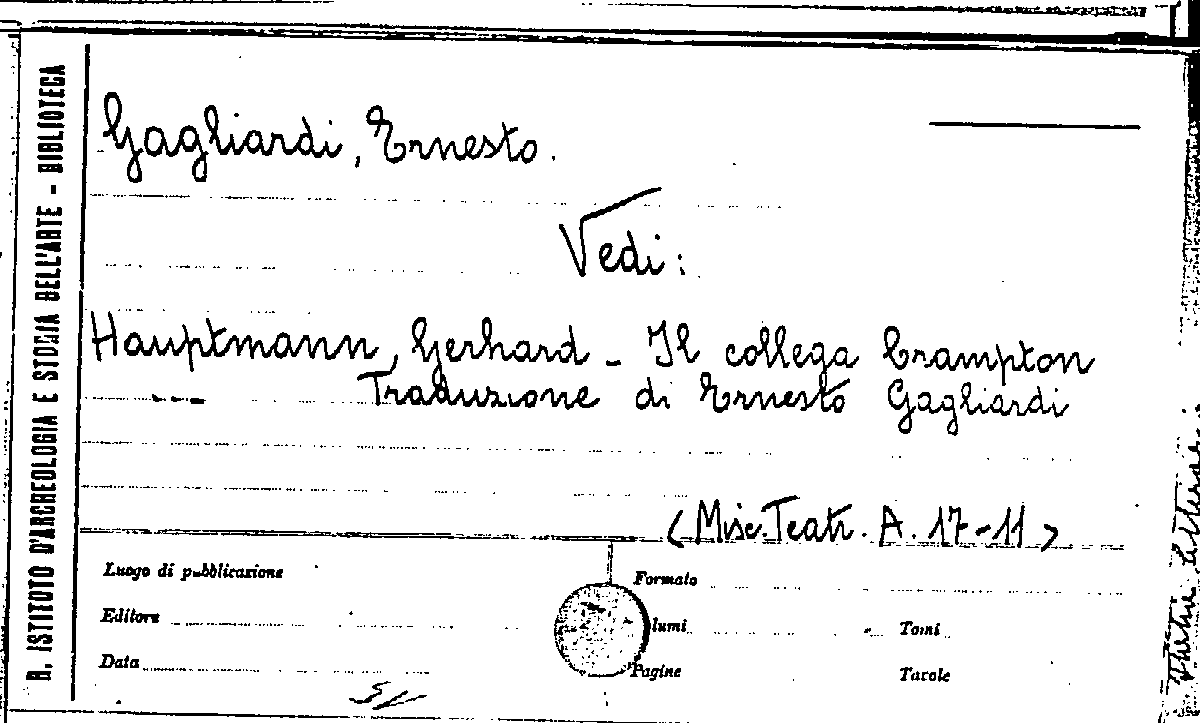 R. ISTITUTO D'ARCHEOLOGIA E STORIA DELL'ARTE - BIBLIOTECA
Gagliardi, Ernesto.
Vedi:
Hauptmann, Gerhard - Il collega Crampton
Traduzione di Ernesto Gagliardi
(Misc. Teatr. A. 17-11)
Luogo di pubblicazione
Formato
Editore
lumi
Tomi
Data
Pagine
Tavole